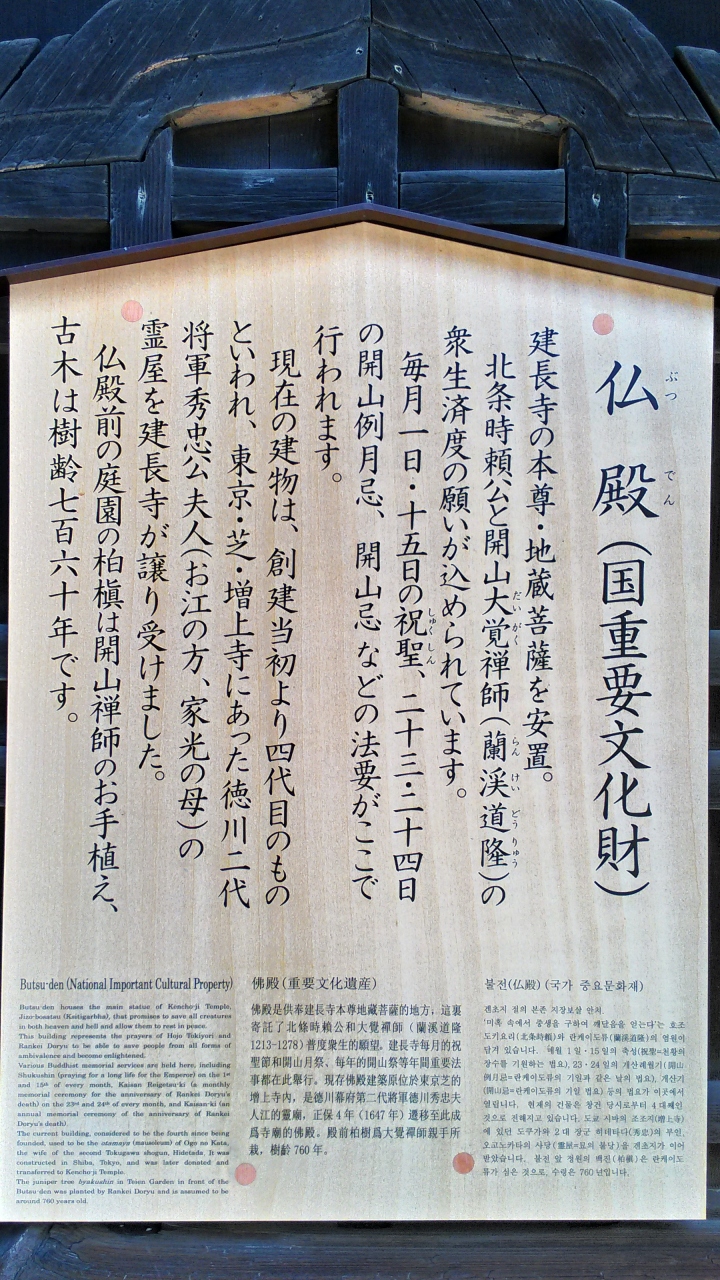 仏殿（国重要文化財）
建長寺の本尊・地蔵菩薩を安置。
北条時頼公と開山大覚禅師（蘭渓道隆）の
衆生済度の願いが込められています。
毎月一日・十五日の祝聖、二十三・二十四日
の開山例月忌、開山忌などの法要がここで
行われます。
現在の建物は、創建当初より四代目のもの
といわれ、東京・芝・増上寺にあった徳川二代
将軍秀忠公夫人（お江の方、家光の母）の
霊屋を建長寺が譲り受けました。
仏殿前の庭園の柏槇は開山禅師のお手植え、
古木は樹齢七百六十年です。
Butsu-den (National Important Cultural Property)
Butsu-den houses the main statue of Kencho-ji Temple,
Jizo-bosatsu (Ksitigarbha), that promises to save all creatures
in both heaven and hell and allow them to rest in peace.
This building represents the prayers of Hojo Tokiyori and
Rankei Doryu to be able to save people from all forms of
ambivalence and become enlightened.
Various Buddhist memorial services are held here, including
Shukushin (praying for a long life for the Emperor) on the 1st
and 15th of every month, Kaisan Reigetsu-ki (a monthly
memorial ceremony for the anniversary of Rankei Doryu's
death) on the 23rd and 24th of every month, and Kaisan-ki (an
annual memorial ceremony of the anniversary of Rankei
Doryu's death).
The current building, considered to be the fourth since being
founded, used to be the otamaya (mausoleum) of Ogo no Kata,
the wife of the second Tokugawa shogun, Hidetada. It was
constructed in Shiba, Tokyo, and was later donated and
transferred to Kencho-ji Temple.
The juniper tree byakushin in Teien Garden in front of the
Butsu-den was planted by Rankei Doryu and is assumed to be
around 760 years old.
佛殿（重要文化遺産）
佛殿是供奉建長寺本尊地藏菩薩的地方，這裏
寄託了北條時賴公和大覺禪師（蘭溪道隆
1213-1278）普度衆生的願望。建長寺每月的祝
聖節和開山月祭、每年的開山祭等年間重要法
事都在此舉行。現存佛殿建築原位於東京芝的
增上寺内，是德川幕府第二代將軍德川秀忠夫
人江的靈廟，正保 4 年（1647 年）遷移至此成
爲寺廟的佛殿。殿前柏樹爲大覺禪師親手所
栽，樹齡 760 年。
불전(仏殿) (국가 중요문화재)
켄초지 절의 본존 지장보살 안치.
'미혹 속에서 중생을 구하여 깨달음을 얻는다'는 호조
도키요리(北条時頼)와 란케이도류(蘭渓道隆)의 염원이
담겨 있습니다. 매월 1일·15일의 축성(祝聖=천황의
장수를 기원하는 법요), 23·24일의 개산례월기(開山
例月忌=란케이도류의 기일과 같은 날의 법요), 개산기
(開山忌=란케이도류의 기일 법요) 등의 법요가 이곳에서
열립니다. 현재의 건물은 창건 당시로부터 4대째인
것으로 전해지고 있습니다. 도쿄 시바의 조조지(増上寺)
에 있던 도쿠가와 2대 장군 히데타다(秀忠)의 부인,
오고노카타의 사당(霊屋=묘의 불당)을 켄초지가 이어
받았습니다. 불전 앞 정원의 백진(柏槇)은 란케이도
류가 심은 것으로, 수령은 760년입니다.